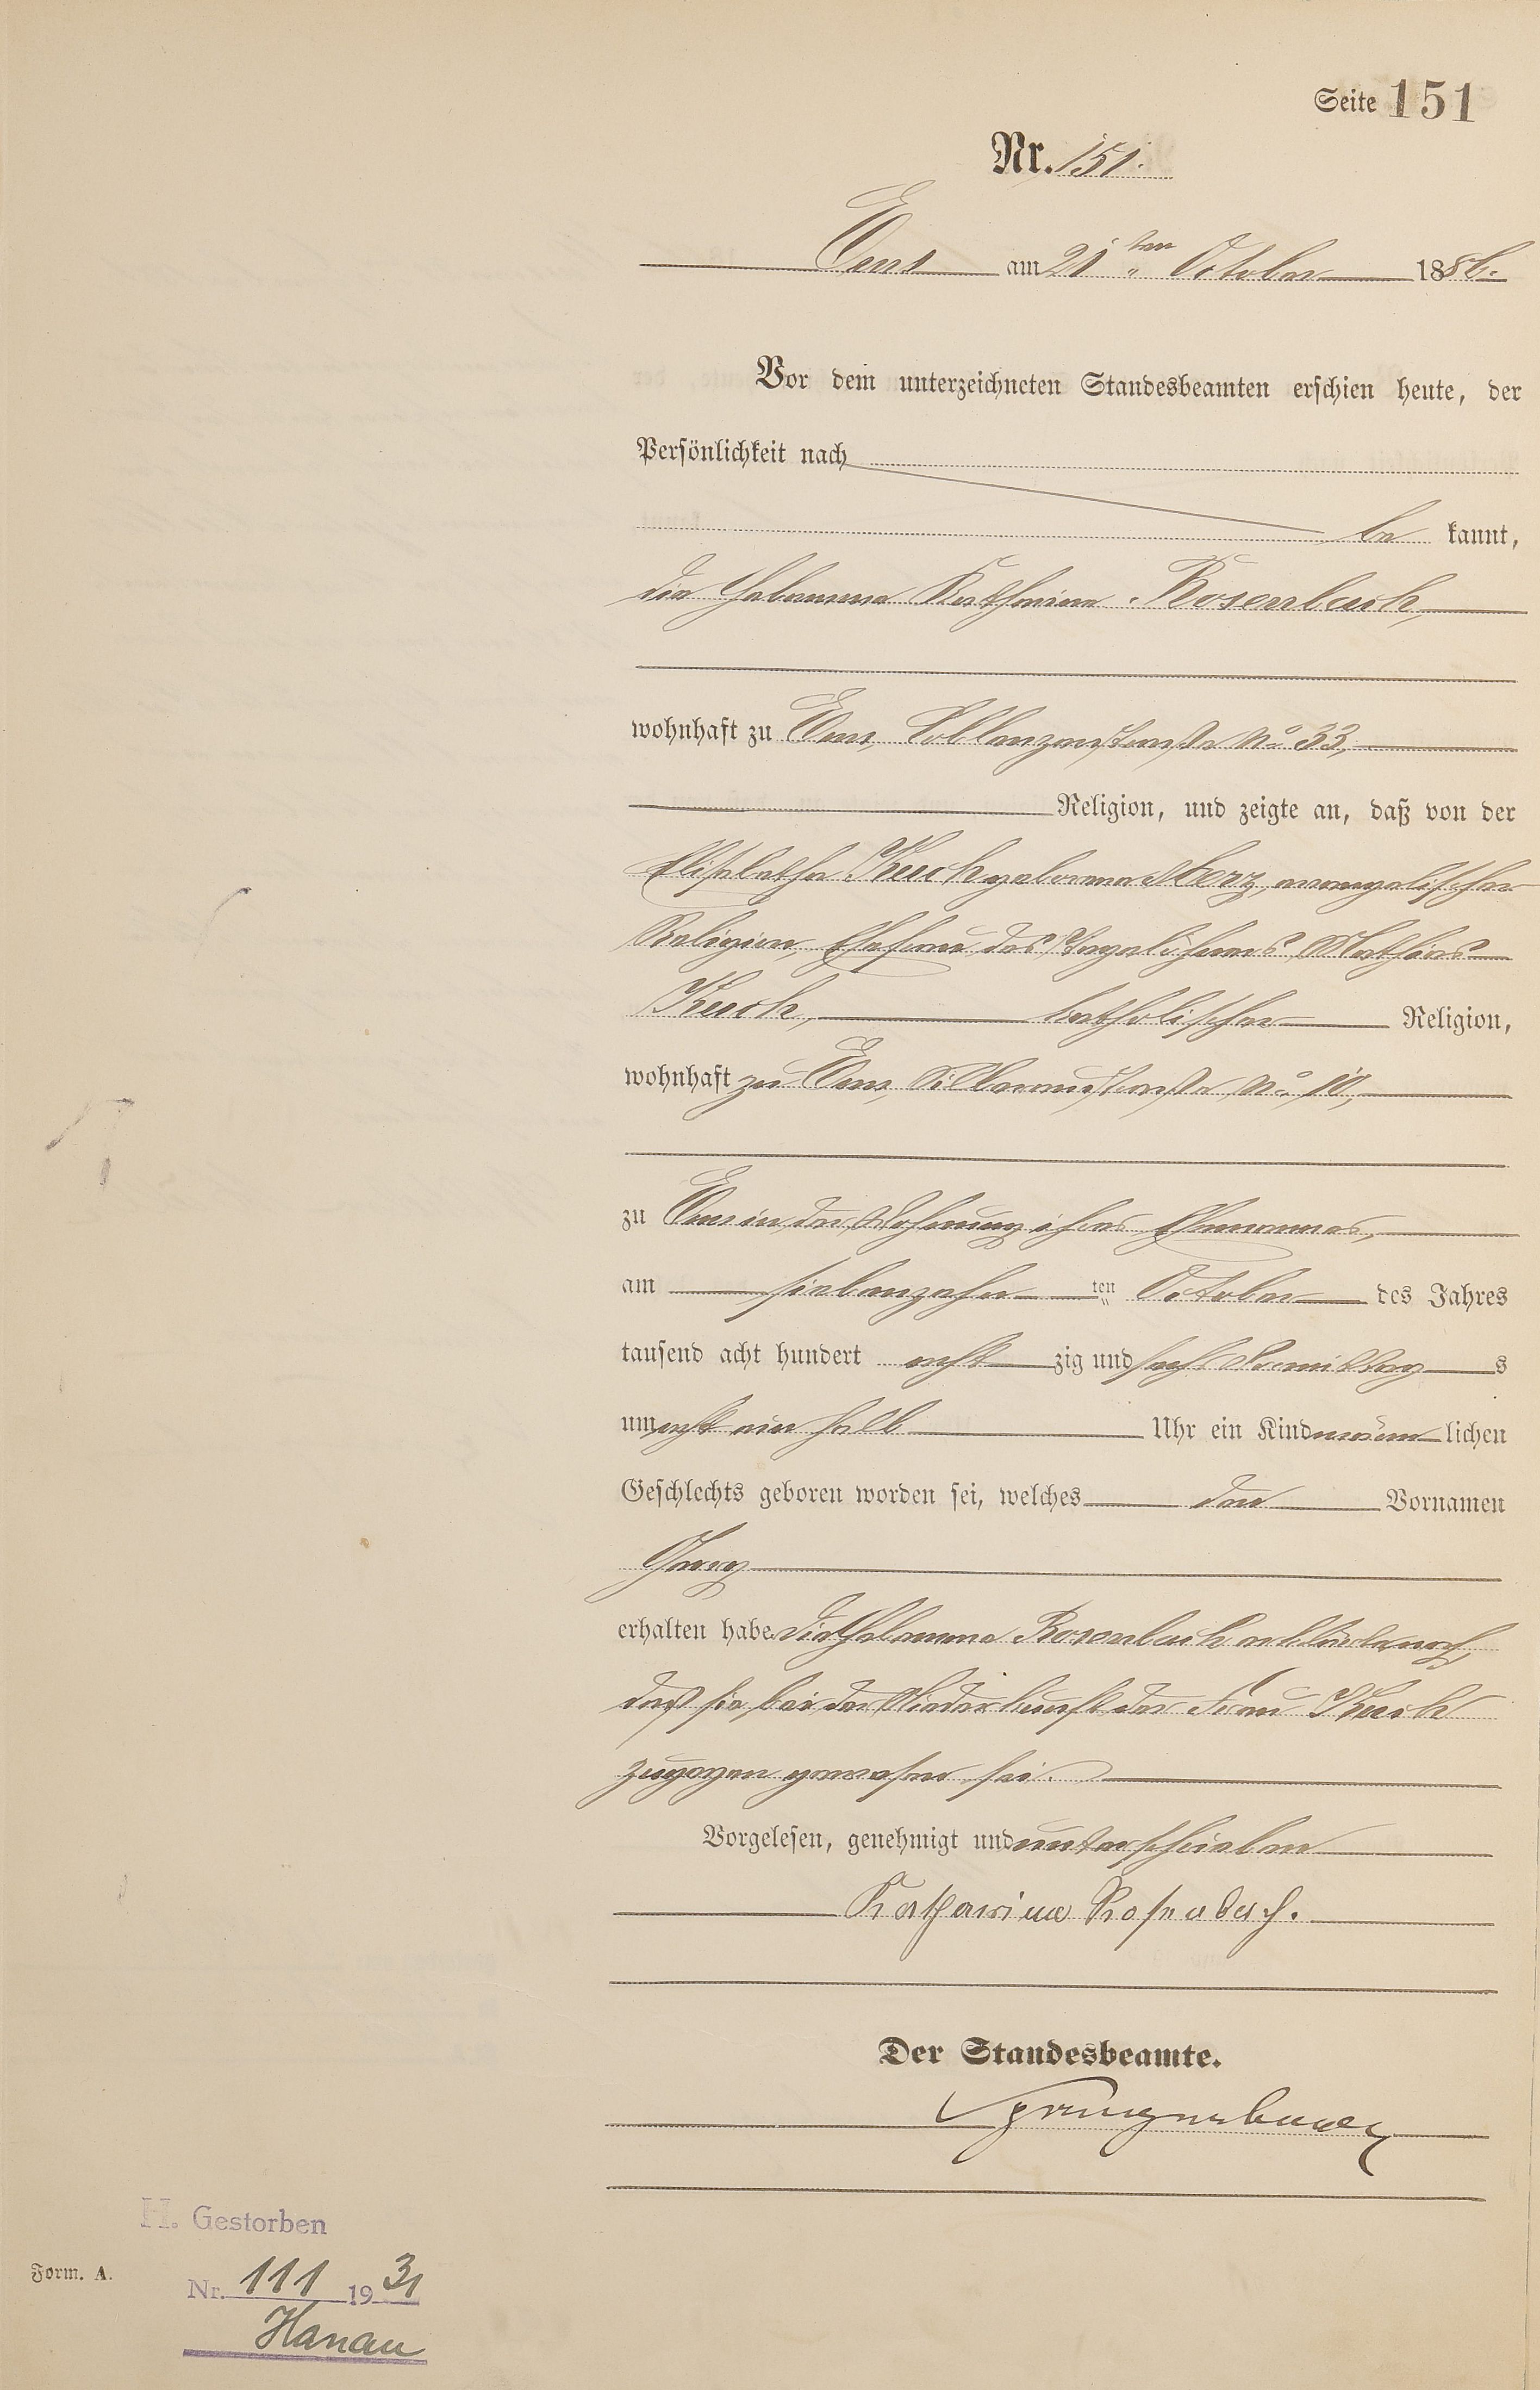 Seite 151
Nr. 151.
Ems am 21ten October 1886.
Vor dem unterzeichneten Standesbeamten erschien heute, der
Persönlichkeit nach
be kannt,
die Hebamme Katharina Rosenbach,
wohnhaft zu Ems, Coblenzerstraße No 33,
Religion, und zeigte an, daß von der
Elisabetha Kuch geborene Merz, evangelischer
Religion, Ehefrau des Tagelöhners Mathias
Kuch, katholischer Religion,
wohnhaft zu Ems, Silberaustraße No 10,
zu Ems in der Wohnung ihres Ehemannes,
am siebenzehn ten October des Jahres
tausend acht hundert acht zig und sechs Vormittag s
um acht ein halb Uhr ein Kind männ lichen
Geschlechts geboren worden sei, welches den Vornamen
Georg
erhalten habe. Die Hebamme Rosenbach erklärte noch,
daß sie bei der Niederkunft der Frau Kuch
zugegen gewesen sei.
Vorgelesen, genehmigt und unterschrieben
Katharina Rosenbach.
Der Standesbeamte.
H. Gestorben
Form. A.
Nr. 111 1931
Hanau